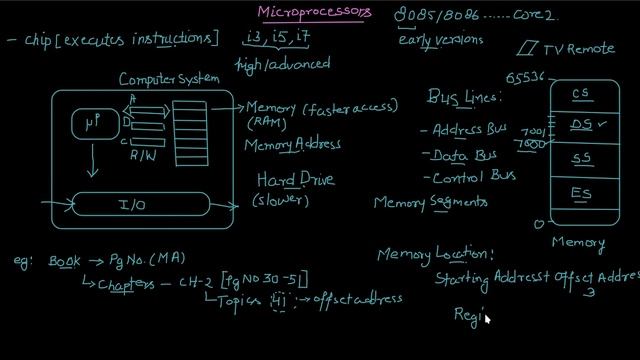 Microprocessors
8085/8086 ...... Core2
- chip [executes instructions]
i3, i5, i7
early versions
TV Remote
high/advanced
Computer System
65536
A
D
C
μP
R/W
Memory (faster access)
(RAM)
Memory Address
Hard Drive
(slower)
I/O
Bus Lines:
- Address Bus
- Data Bus
- Control Bus
Memory Segments
CS
7001
DS ✓
7000
SS
ES
0
Memory
eg: Book → Pg No. (MA)
↳ Chapters - CH-2 [Pg No 30-51]
↳ Topics 41 → offset address
Memory Location:
Starting Address + Offset Address
3
Regi